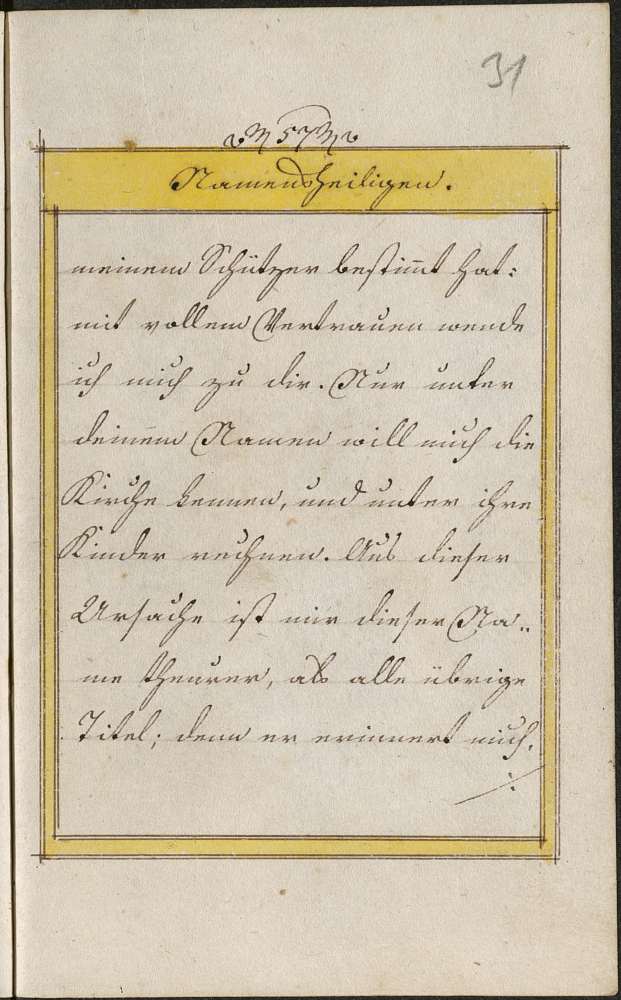 31
57
Namensheiligen.
meinem Schützer bestim̄t hat:
mit vollem Vertrauen wende
ich mich zu dir. Nur unter
deinem Namen will mich die
Kirche kennen, und unter ihre
Kinder rechnen. Aus dieser
Ursache ist mir dieser Na„
me theurer, als alle übrige
Titel; denn er erinnert mich,